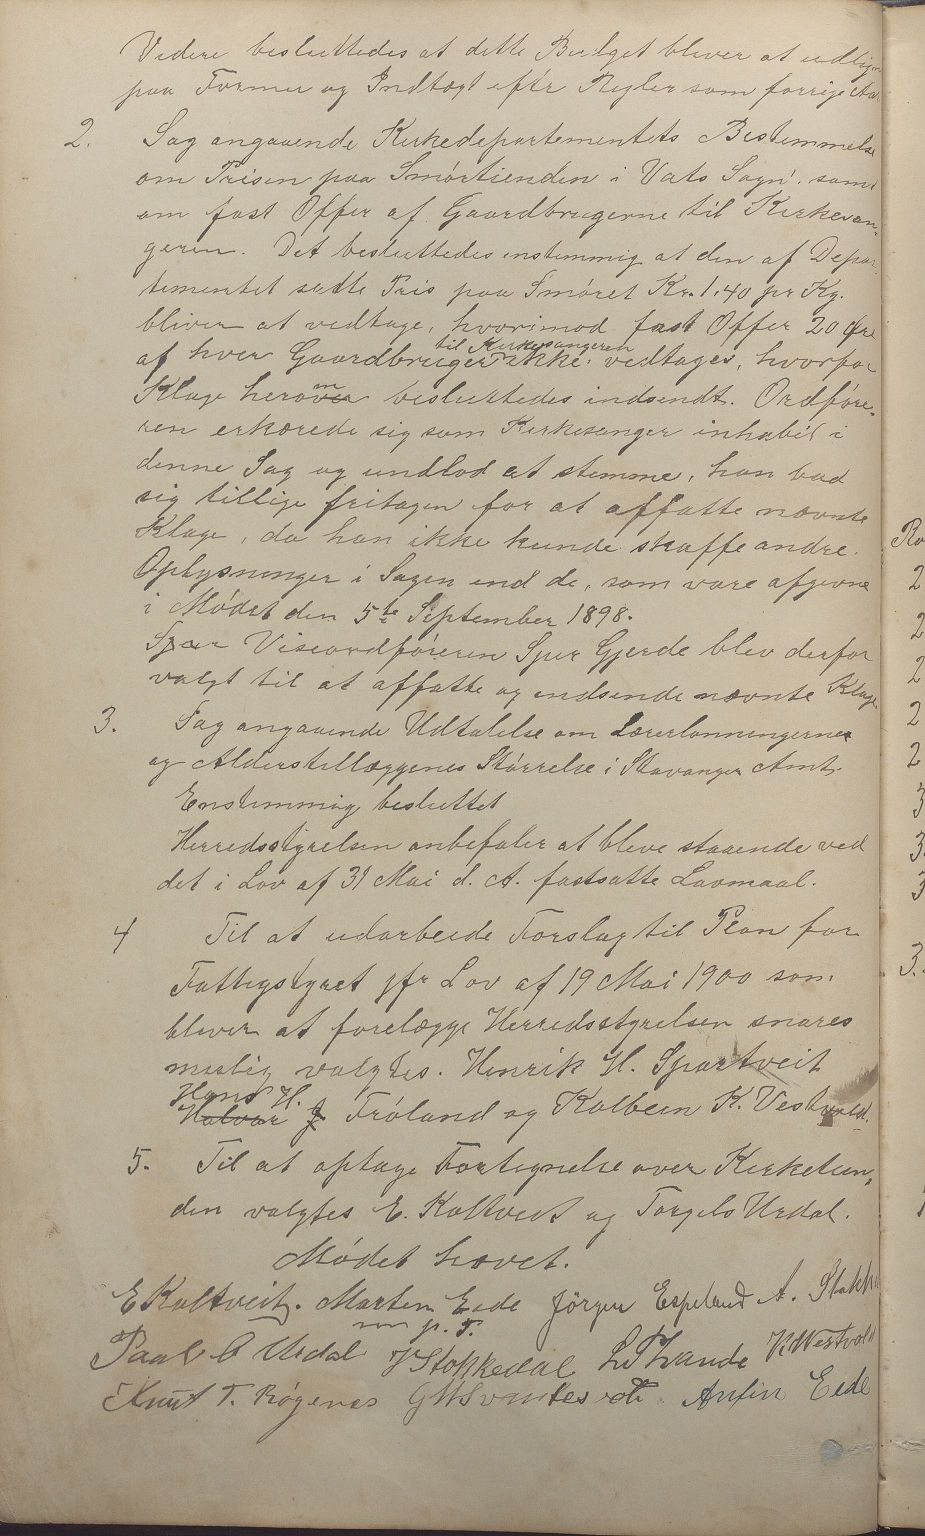 Videre besluttedes at dette Budget bliver at udlign
paa Formue og Indtægt efter Regler som forrige Aar
2. Sag angaaende Kirkedepartementets Bestemmelse
om Prisen paa Smørtienden i Vats Sogn, samt
om fast Offer af Gaardbrugerne til Kirkesan-
geren. Det besluttedes enstemmig at den af Depar
tementet satte Pris paa Smøret Kr. 1,40 pr Kg.
bliver at vedtage, hvorimod fast Offer 20 Øre
til Kirkesangeren
af hver Gaardbruger ikke vedtages, hvorfor
Klage herom besluttedes indsendt. Ordføre-
ren erkærede sig som Kirkesanger inhabil i
denne Sag og undlod at stemme, han bad
sig tillige fritagen for at affatte nævnte
Klage, da han ikke kunde skaffe andre
Oplysninger i Sagen end de, som vare afgivne
i Mødet den 5te September 1898.
Viseordføreren Sjur Gjerde blev derfor
valgt til at affatte og indsende nævnte Klage
3. Sag angaaende Udtalelse om Lærerlønningerne
og Alderstillæggenes Størrelse i Stavanger Amt.
Enstemmig besluttet
Herredsstyrelsen anbefaler at blive staaende ved
det i Lov af 31 Mai d. A. fastsatte Lavmaal.
4 Til at udarbeide Forslag til Plan for
Fattigstyret jfr Lov af 19 Mai 1900 som
bliver at forelægge Herredsstyrelsen snares
mulig valgtes. Henrik H. Spartveit
Hans H.
Halvar J Frøland og Kolbein K. Vestvold.
5. Til at optage Fortegnelse over Kirketien-
den valgtes E. Koltveit og Torgels Urdal.
Mødet hævet.
E Koltveit. Martin Eide Jørgen Espeland A. Stakke
p. T.
Paal O Urdal V Stokkedal L T Lande K. Westvold
Knut T. Røgenes G W Svantesvolt Anfin Eide